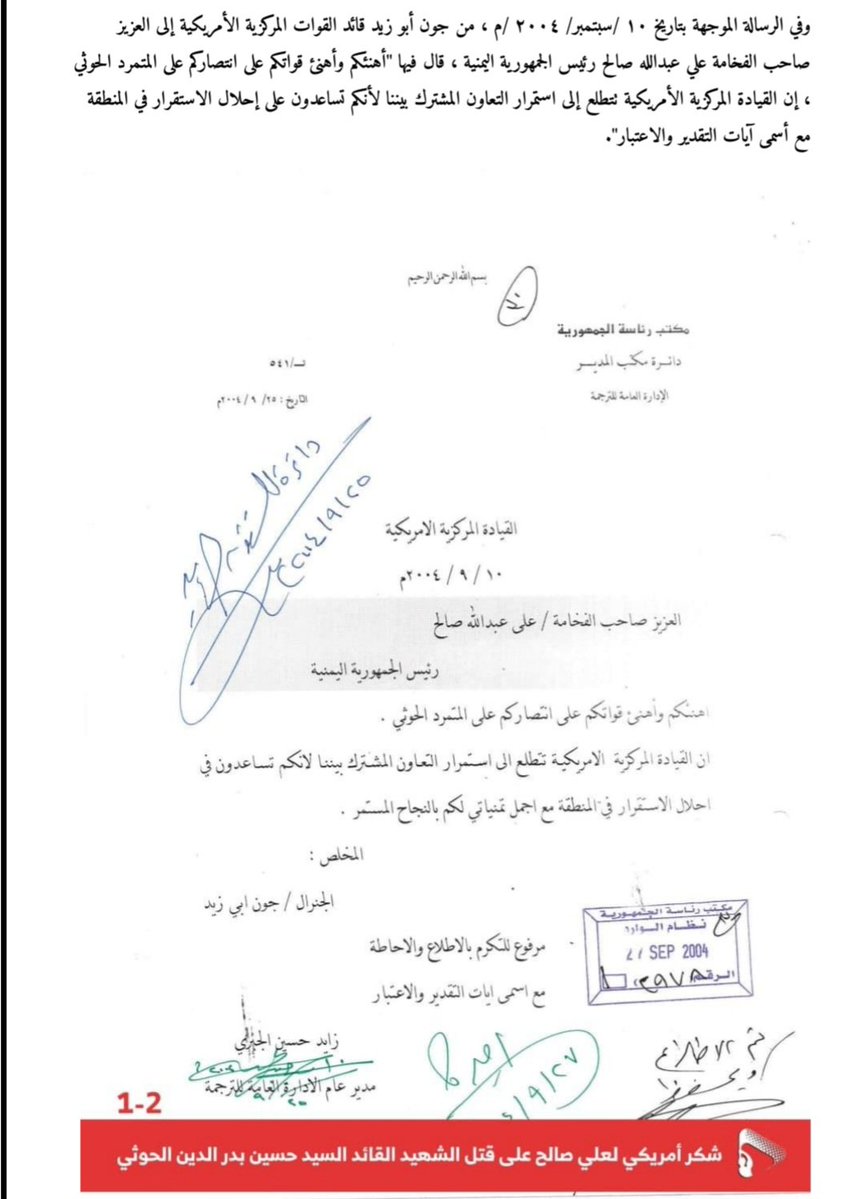 وفي الرسالة الموجهة بتاريخ ١٠ /سبتمبر/ ٢٠٠٤ /م ، من جون أبو زيد قائد القوات المركزية الأمريكية إلى العزيز
صاحب الفخامة علي عبدالله صالح رئيس الجمهورية اليمنية ، قال فيها "أهنئكم وأهنئ قواتكم على انتصاركم على المتمرد الحوثي
، إن القيادة المركزية الأمريكية تتطلع إلى استمرار التعاون المشترك بيننا لأنكم تساعدون على إحلال الاستقرار في المنطقة
مع أسمى آيات التقدير والاعتبار".
بسم الله الرحمن الرحيم
مكتب رئاسة الجمهورية
دائرة مكتب المدير
الإدارة العامة للترجمة
تـ/٥٤١
التاريخ : ٢٥/ ٩ / ٢٠٠٤م
٢٠٠٤/٩/٢٥
القيادة المركزية الامريكية
١٠ / ٩ / ٢٠٠٤م
العزيز صاحب الفخامة / على عبدالله صالح
رئيس الجمهورية اليمنية
اهنئكم وأهنئ قواتكم على انتصاركم على المتمرد الحوثي .
ان القيادة المركزية الامريكية تتطلع الى استمرار التعاون المشترك بيننا لانكم تساعدون في
احلال الاستقرار في المنطقة مع اجمل تمنياتي لكم بالنجاح المستمر .
المخلص :
الجنرال / جون ابي زيد
مكتب رئاسة الجمهورية
نظام الوارد
27 SEP 2004
الرقم
مرفوع للتكرم بالاطلاع والاحاطة
مع اسمى ايات التقدير والاعتبار
زايد حسين
مدير عام الادارة العامة للترجمة
تم الاطلاع
ويحفظ
٩/٢٧
1-2
شكر أمريكي لعلي صالح على قتل الشهيد القائد السيد حسين بدر الدين الحوثي